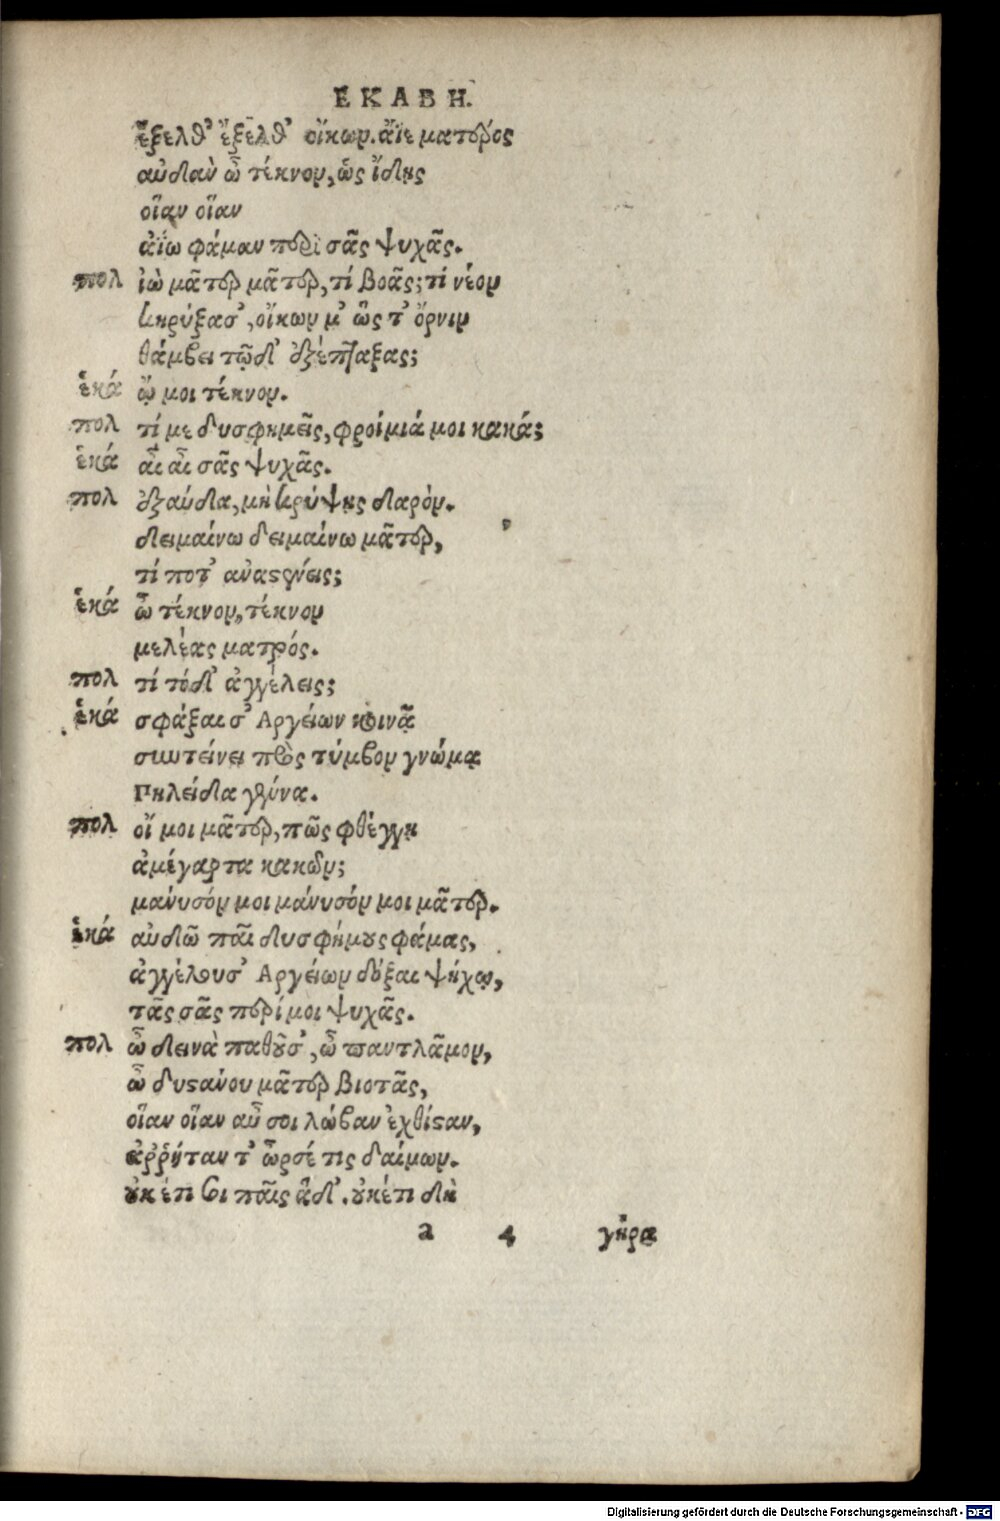 ΕΚΑΒΗ.
ἔξελθ' ἔξελθ' οἴκων. ἄϊε ματέρος
αὐδὰν ὦ τέκνον, ὡς ἴδῃς
οἵαν οἵαν
ἀΐω φάμαν περὶ σᾶς ψυχᾶς.
πολ ἰὼ μᾶτερ μᾶτερ, τί βοᾷς; τί νέον
κηρύξασ', οἴκων μ' ὥς τ' ὄρνιν
θάμβει τῷδ' ἐξέπταξας;
ἑκά ὤ μοι τέκνον.
πολ τί με δυσφημεῖς, φροίμιά μοι κακά;
ἑκά αἲ αἲ σᾶς ψυχᾶς.
πολ ἐξαύδα, μὴ κρύψῃς δαρὸν.
δειμαίνω δειμαίνω μᾶτερ,
τί ποτ' αναστένεις;
ἑκά ὦ τέκνον, τέκνον
μελέας ματρός.
πολ τί τόδ' ἀγγέλεις;
ἑκά σφάξαι σ' Αργείων κοινᾷ
συντείνει πρὸς τύμβον γνώμα
Πηλείδα γέννα.
πολ οἴ μοι μᾶτερ, πῶς φθέγγῃ
ἀμέγαρτα κακῶν;
μάνυσόν μοι μάνυσόν μοι μᾶτερ.
ἑκά αὐδῶ παῖ δυσφήμους φάμας,
ἀγγέλουσ' Αργείων δόξαι ψήφῳ,
τᾶς σᾶς περί μοι ψυχᾶς.
πολ ὦ δεινὰ παθοῦσ', ὦ παντλᾶμον,
ὦ δυστάνου μᾶτερ βιοτᾶς,
οἵαν οἵαν αὖ σοι λώβαν ἐχθίσταν,
ἀῤῥήταν τ' ὦρσέ τις δαίμων.
οὐκ έτι σοι παῖς ἅδ'. οὐκέτι δὴ
a 4 γήρᾳ
Digitalisierung gefördert durch die Deutsche Forschungsgemeinschaft - DFG